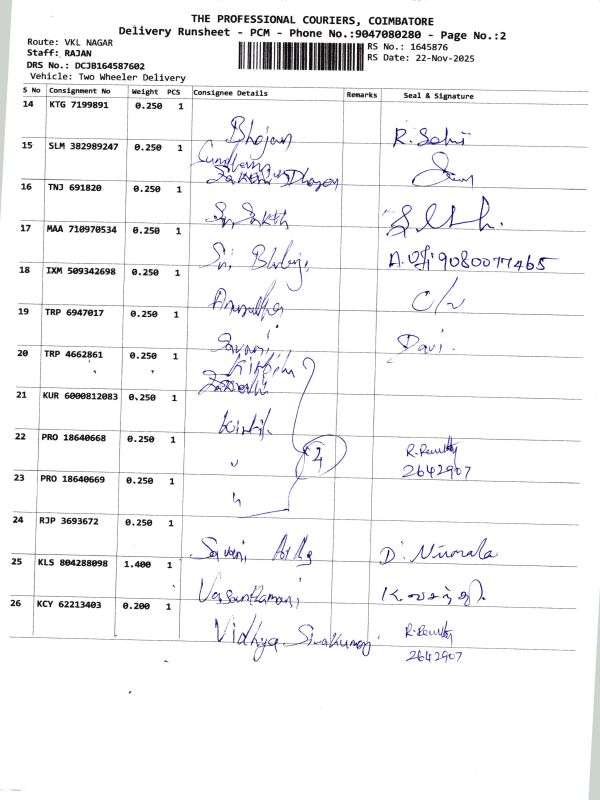 THE PROFESSIONAL COURIERS, COIMBATORE
Delivery Runsheet - PCM - Phone No.:9047080280 - Page No.:2
Route: VKL NAGAR
Staff: RAJAN
DRS No.: DCJB164587602
Vehicle: Two Wheeler Delivery
RS No.: 1645876
RS Date: 22-Nov-2025
S No Consignment No Weight PCS Consignee Details Remarks Seal & Signature
14 KTG 7199891 0.250 1 Bhojan
15 SLM 382989247 0.250 1
16 TNJ 691820 0.250 1 Sri Sakth
17 MAA 710970534 0.250 1 Sri 9080077465
18 IXM 509342698 0.250 1 C/w
19 TRP 6947017 0.250 1
20 TRP 4662861 0.250 1
21 KUR 6000812083 0.250 1
22 PRO 18640668 0.250 1 " 4 2642907
23 PRO 18640669 0.250 1 "
24 RJP 3693672 0.250 1 D. Nirmala
25 KLS 804288098 1.400 1 Vasanthamani
26 KCY 62213403 0.200 1 Vidhya Sivakumar 2642907